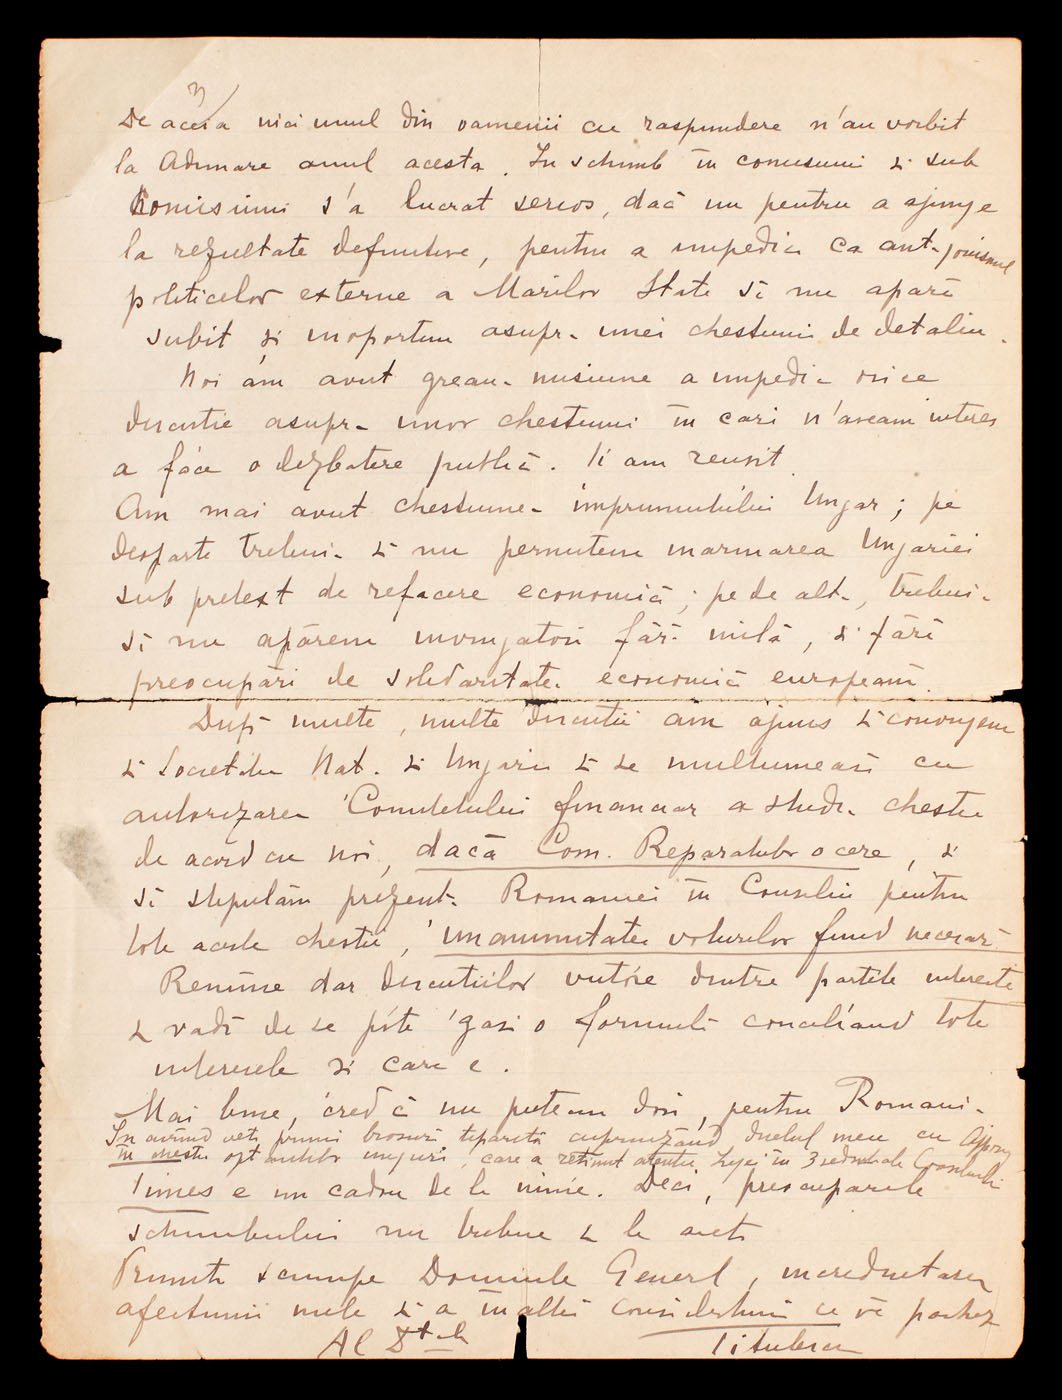 3
De aceia nici unul din oamenii cu raspundere n'au vorbit
la Adunare anul acesta. In schimb în comisiuni si sub
comisiuni s'a lucrat serios, dacă nu pentru a ajunge
la rezultate definitive, pentru a impedica ca antagonismul
politicelor externe a Marilor State să nu apară
subit si inoportun asupra unei chestiuni de detaliu.
Noi am avut greaua misiune a impedica orice
discutie asupra unor chestiuni în cari n'aveam interes
a face o dezbatere publică. Si am reusit.
Am mai avut chestiunea imprumutului Ungar; pe
deoparte trebuia să nu permitem inarmarea Ungariei
sub pretext de refacere economică; pe de alta, trebuia
să nu apărem invingatori fără milă, si fără
preocupări de solidaritate economică europeană.
După multe, multe discutii am ajuns să convingem
si Societatea Nat. si Ungaria să se multumească cu
autorizarea Comitetului financiar a studia chestia
de acord cu noi, dacă Com. Reparatiilor o cere, si
să stipulăm prezenta Romaniei în Consiliu pentru
tote aceste chestii, unanimitatea voturilor fiind necesară
Remâne dar discutiilor viitóre dintre partile interesate
să vadă de se póte gasi o formulă conciliand tote
interesele si care e.
Mai bine, cred că nu puteam dori, pentru Romania.
In curând veti primi brosura tiparită cuprinzând duelul meu cu Apponyi
în chestia optantilor unguri, care a retinut atentia Ligei în 3 sedinte ale Consiliului
Times e un cadou de la mine. Deci, preocuparile
schimbului nu trebue să le aveti
Primiti scumpe Domnule General, incredintarea
afectiunii mele si a înaltei consideratiuni ce vă port
Al Dtale
Titulescu